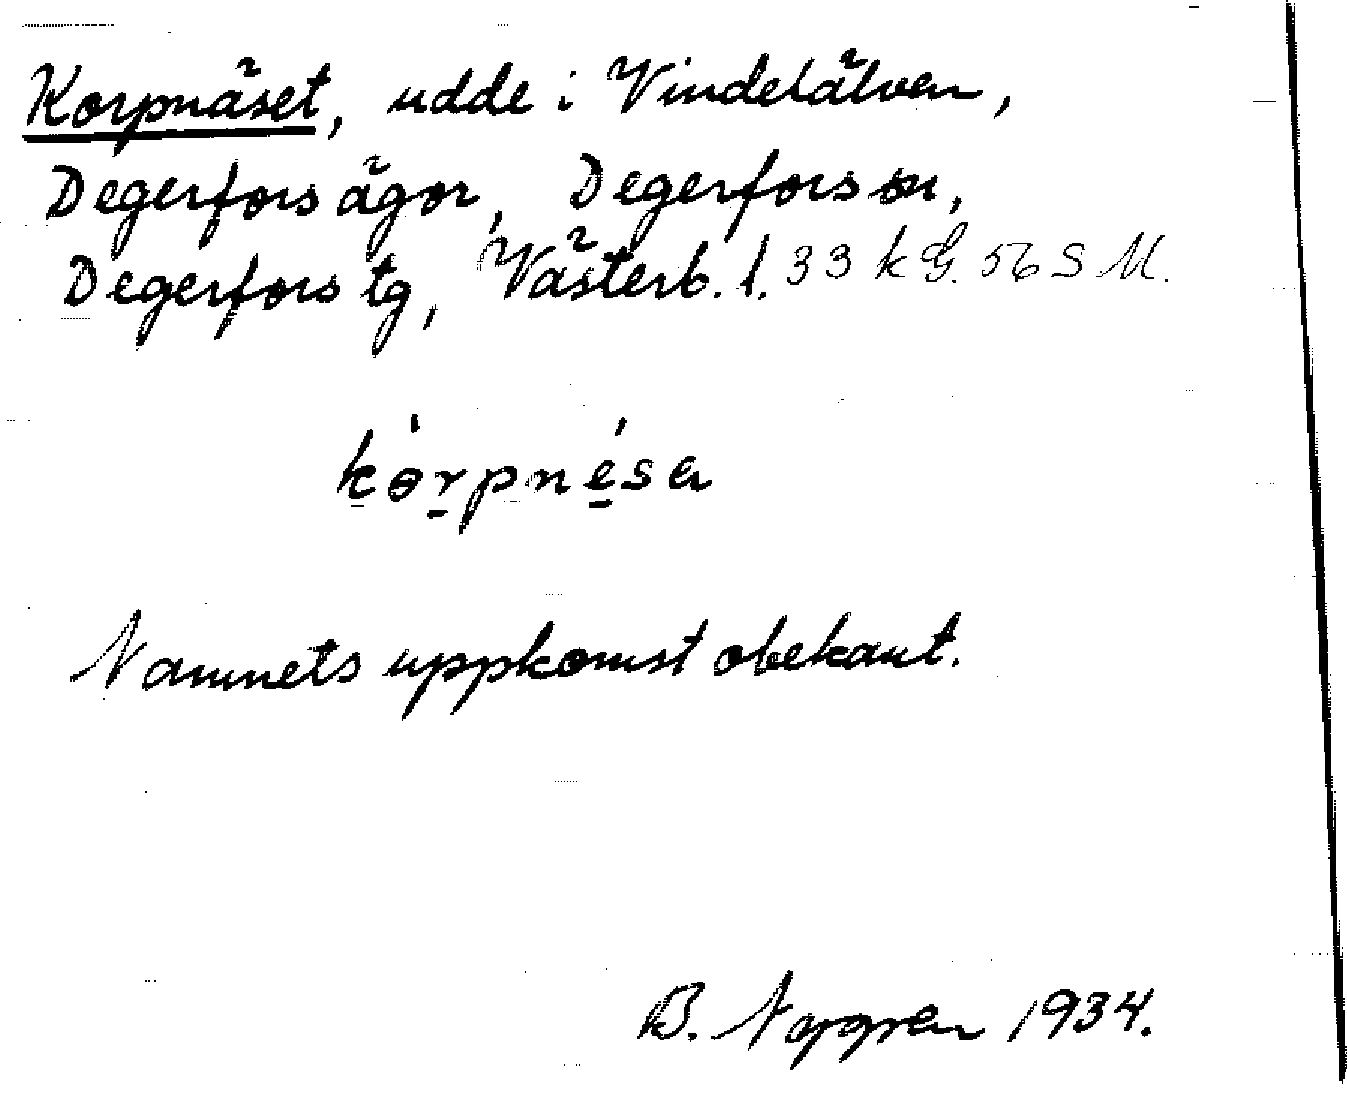 Korpnäset, udde i Vindelälven,
Degerfors ägor, Degerfors sn,
Degerfors tg, Västerb. l. 33 k G. 56 S M.
kòrpnésa
Namnets uppkomst obekant.
B. Nygren 1934.